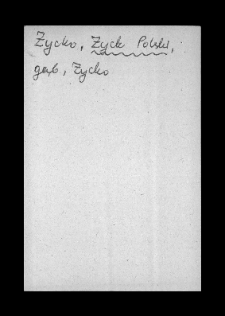 Życko, Życk Polski,
gęb, Życko